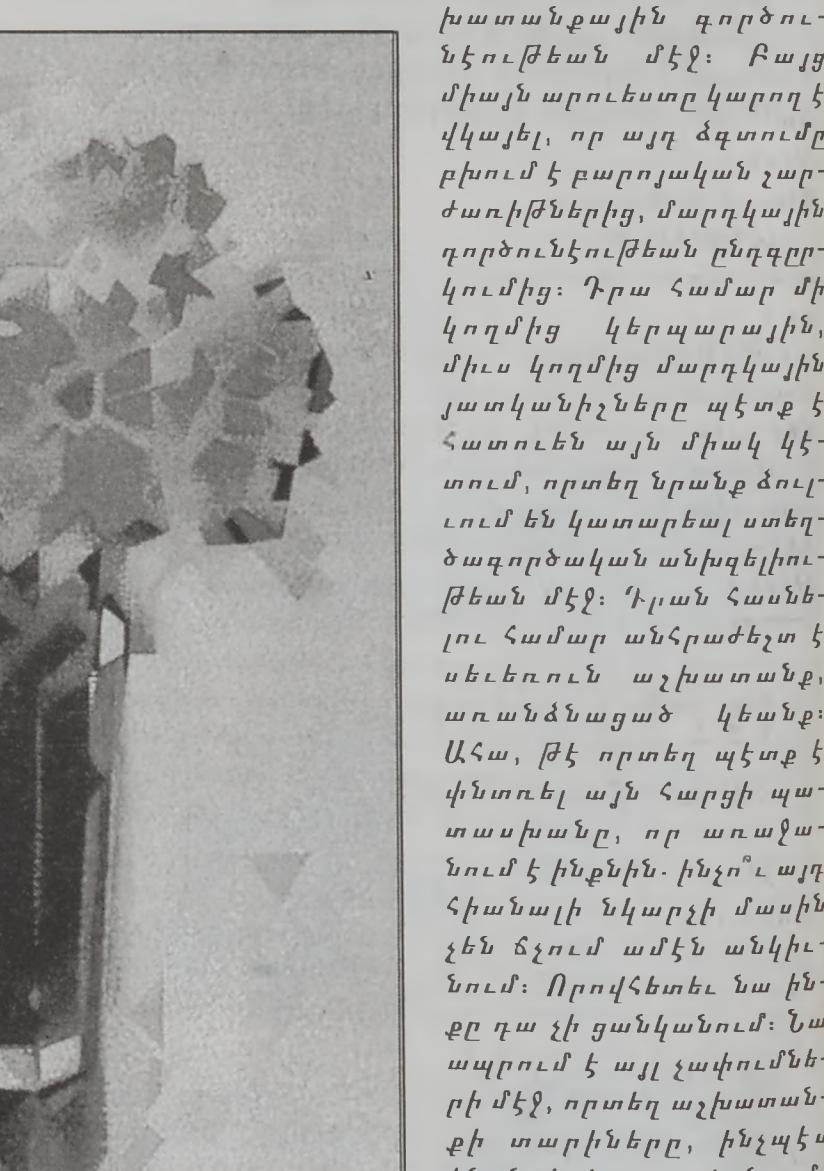 խատանքային գործու-
նէութեան մէջ։ Բայց
միայն արուեստը կարող է
վկայել, որ այդ ձգտումը
բխում է բարոյական շար-
ժառիթներից, մարդկային
գործունէութեան ընդգըր-
կումից։ Դրա համար մի
կողմից կերպարային,
միւս կողմից մարդկային
յատկանիշները պէտք է
հատուեն այն միակ կէ-
տում, որտեղ նրանք ձուլ-
ւում են կատարեալ ստեղ-
ծագործական անխզելիու-
թեան մէջ։ Դրան հասնե-
լու համար անհրաժեշտ է
սեւեռուն աշխատանք,
առանձնացած կեանք։
Ահա, թէ որտեղ պէտք է
փնտռել այն հարցի պա-
տասխանը, որ առաջա-
նում է ինքնին. ինչո՞ւ այդ
հիանալի նկարչի մասին
չեն ճչում ամէն անկիւ-
նում։ Որովհետեւ նա ին-
քը դա չի ցանկանում։ Նա
ապրում է այլ չափումնե-
րի մէջ, որտեղ աշխատան-
քի տարիները, ինչպէս